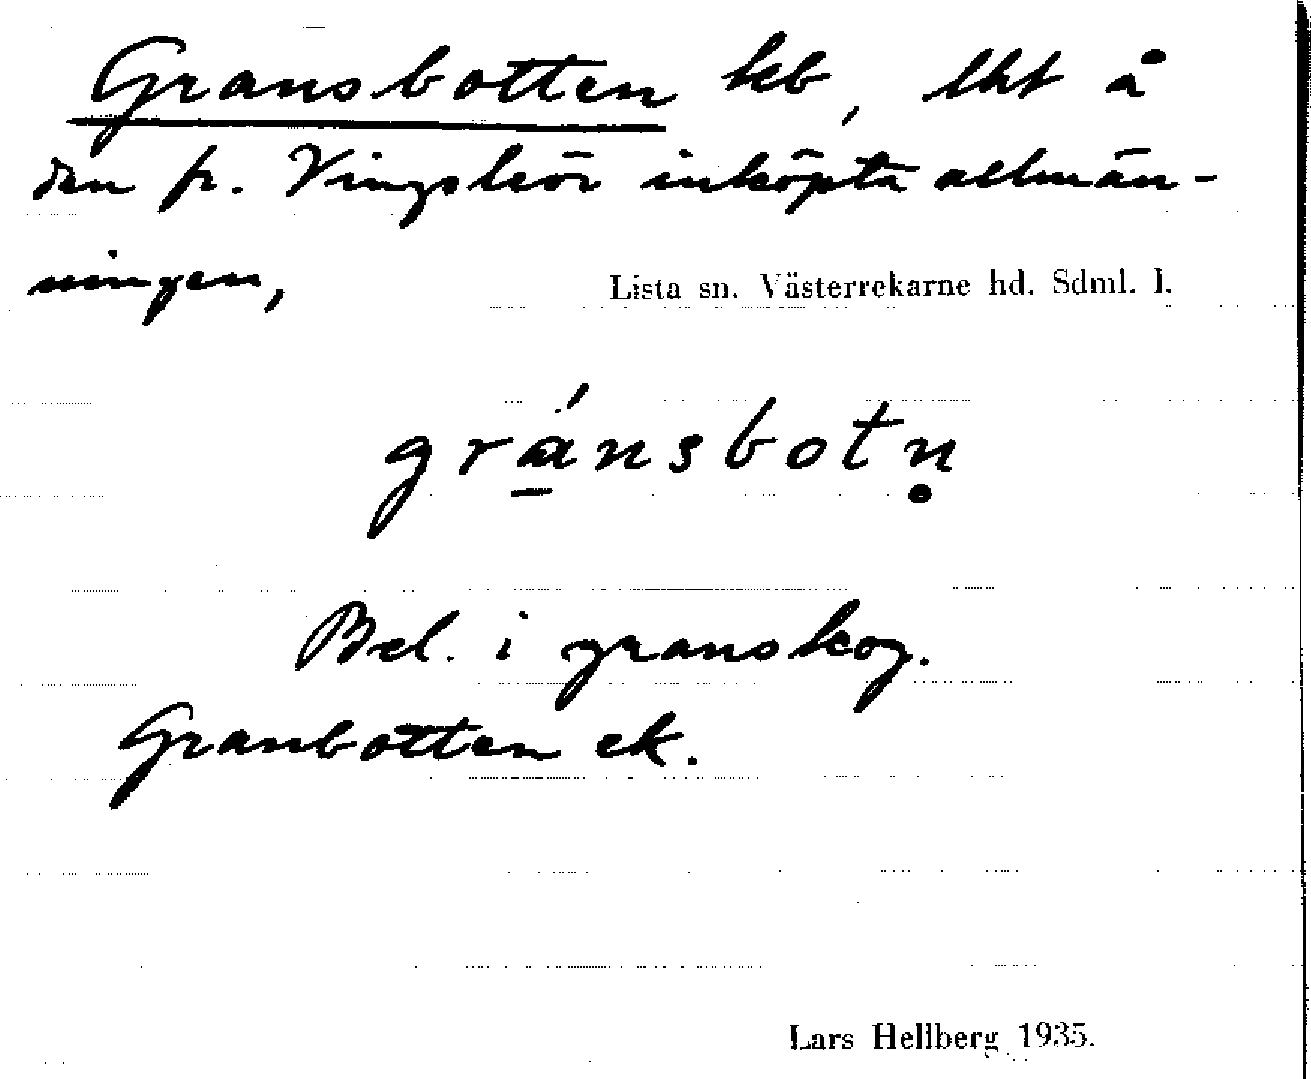 Gransbotten kb, lht å
den fr. Vingskör inköpta allmän-
ningen,
Lista sn. Västerrekarne hd. Sdml. l.
grá̱nsbotn̥
Bel. i granskog.
Granbotten ek.
Lars Hellberg 1935.